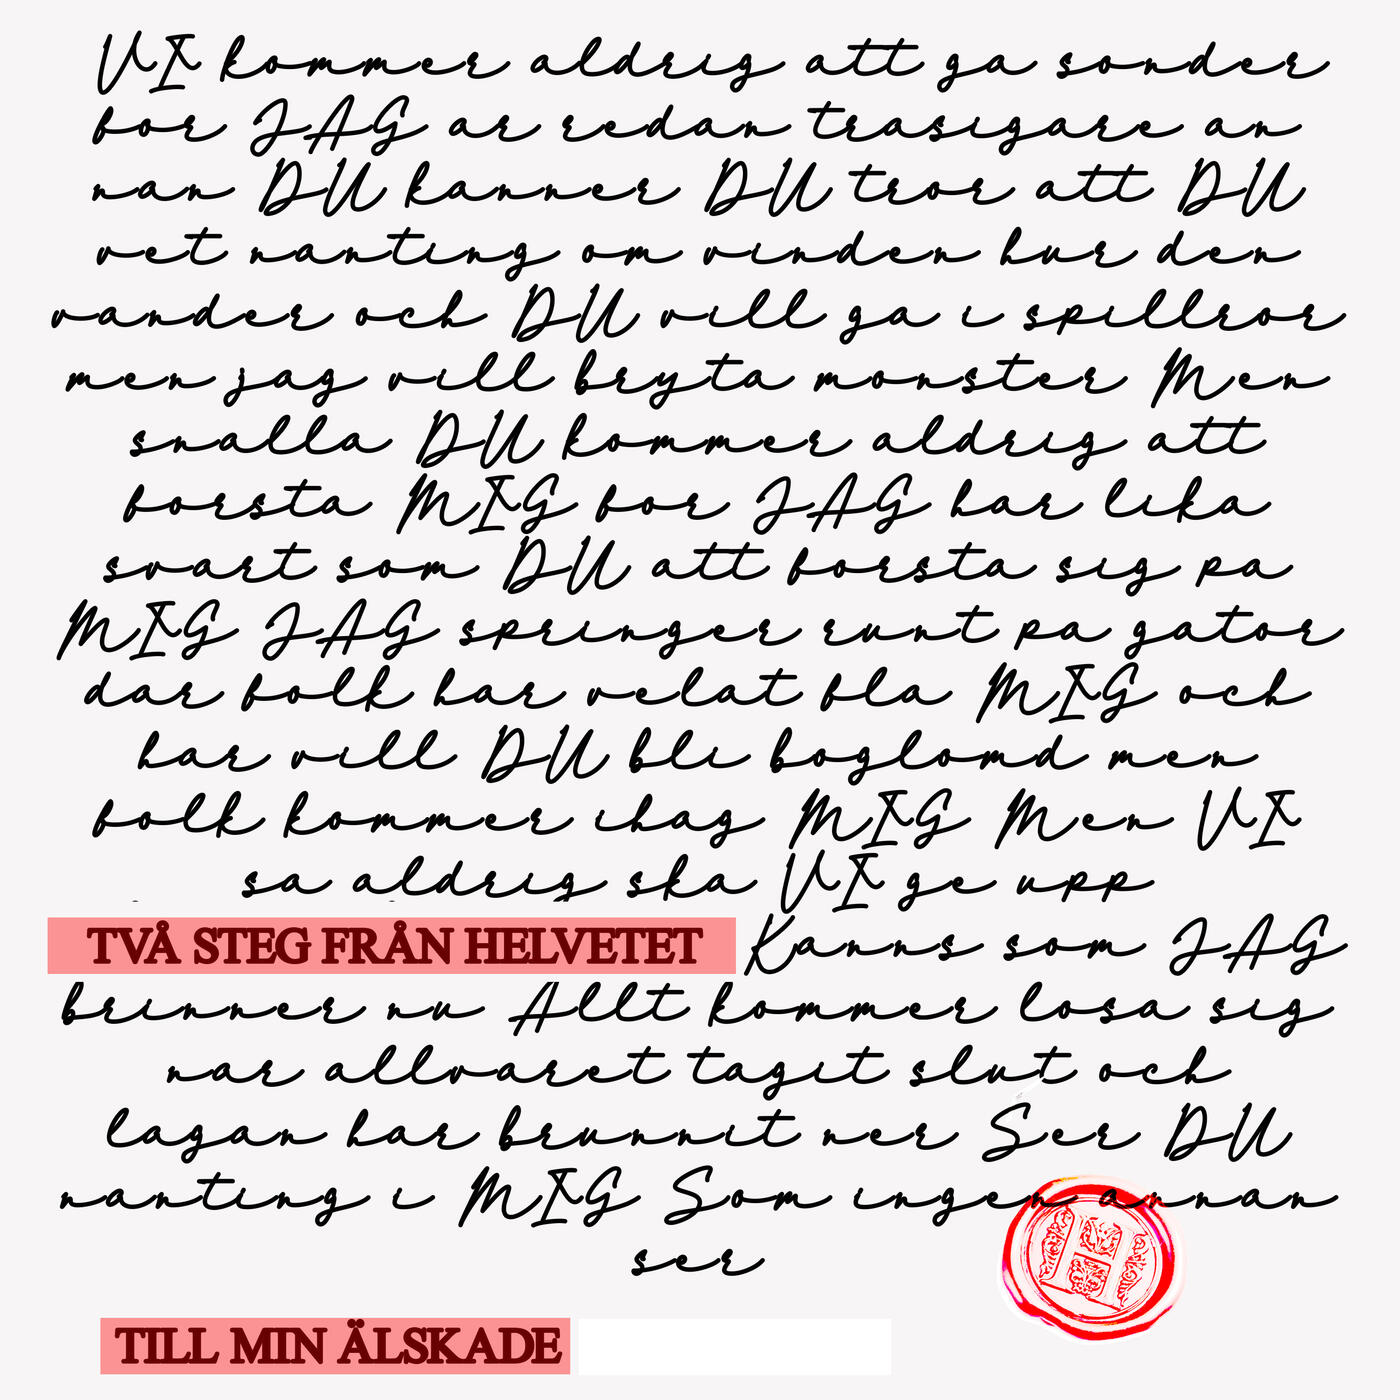 VI kommer aldrig att ga sonder
for JAG ar redan trasigare an
nan DU kanner DU tror att DU
vet nanting om vinden hur den
vander och DU vill ga i spillror
men jag vill bryta monster Men
snalla DU kommer aldrig att
forsta MIG for JAG har lika
svart som DU att forsta sig pa
MIG JAG springer runt pa gator
dar folk har velat fla MIG och
har vill DU bli boglomd men
folk kommer ihag MIG Men VI
sa aldrig ska VI ge upp
TVÅ STEG FRÅN HELVETET Kanns som JAG
brinner nu Allt kommer losa sig
nar allvaret tagit slut och
lagan har brunnit ner Ser DU
nanting i MIG Som ingen annan
ser
H
TILL MIN ÄLSKADE